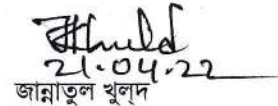 21.04.22
জান্নাতুল খুল্‌দ